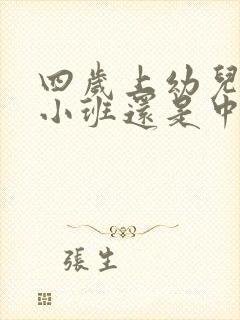 四歲上幼兒
小班還是中
張生